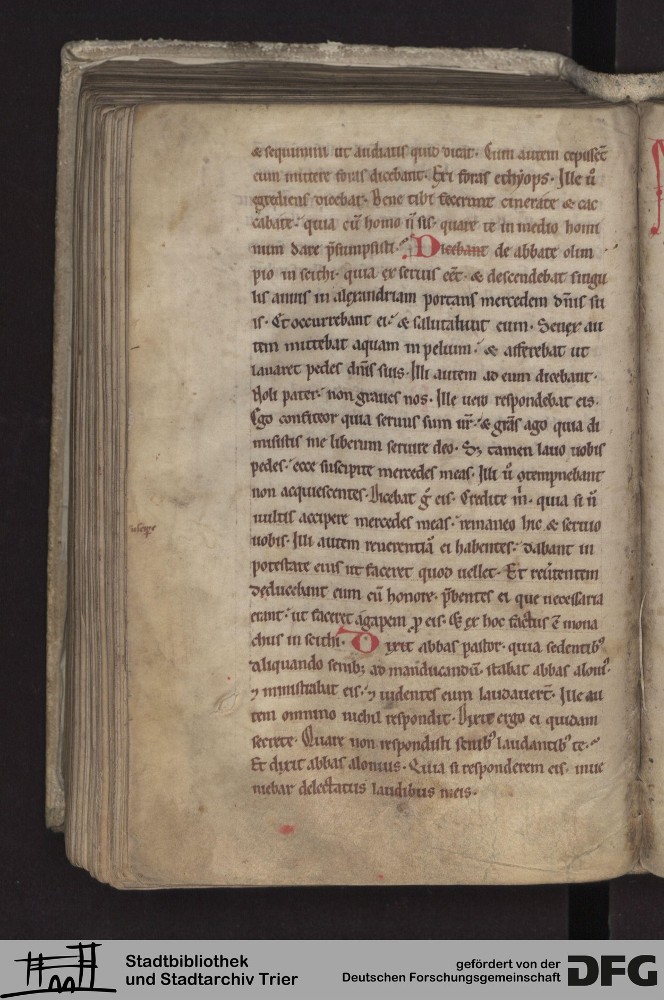 & sequimini ut audiatis quid dicat. Cum autem cepissēt
eum mittere foras dicebant. Exi foras ethyops. Ille ū
egrediens dicebat. Bene tibi fecerunt cinerate & cac
cabate. quia cū homo ñ sis. quare te in medio homi
num dare p̄sumpsisti. Dicebant de abbate olim
pio in scithi. quia ex seruis eēt. & descendebat singu
lis annis in alexandriam portans mercedem dñis su
is. Et occurrebant ei. & salutabant eum. Senex au
tem mittebat aquam in peluim. & afferebat ut
lauaret pedes dñis suis. Illi autem ad eum dicebant.
Noli pater. non graues nos. Ille uero respondebat eis.
Ego confiteor quia seruus sum ur̄. & grās ago quia di
misistis me liberum seruire deo. Sȝ tamen lauo uobis
pedes. ecce suscipite mercedes meas. Illi ū ꝯtempnebant
non acquiescentes. Dicebat ḡ eis. Credite m̄. quia si ñ
uultis accipere mercedes meas. remaneo hic & seruio
uobis. Illi autem reuerentiā ei habentes. dabant in
potestate eius ut faceret quod uellet. Et reūtentem
deducebant eum cū honore. p̄bentes ei que necessaria
erant. ut faceret agapem ꝓ eis. & ex hoc factus ē mona
chus in scithi. Dixit abbas pastor. quia sedentibꝰ
aliquando senibȝ ad manducandū. stabat abbas aloniꝰ.
⁊ ministrabat eis. ⁊ uidentes eum laudauert̄. Ille au
tem omnino nichil respondit. Dixit ergo ei quidam
secrete. Quare non respondisti senibꝰ laudantibꝰ te.
Et dixit abbas alonius. Quia si responderem eis. inue
niebar delectatus laudibus meis.
Stadtbibliothek
und Stadtarchiv Trier
gefördert von der
Deutschen Forschungsgemeinschaft
DFG